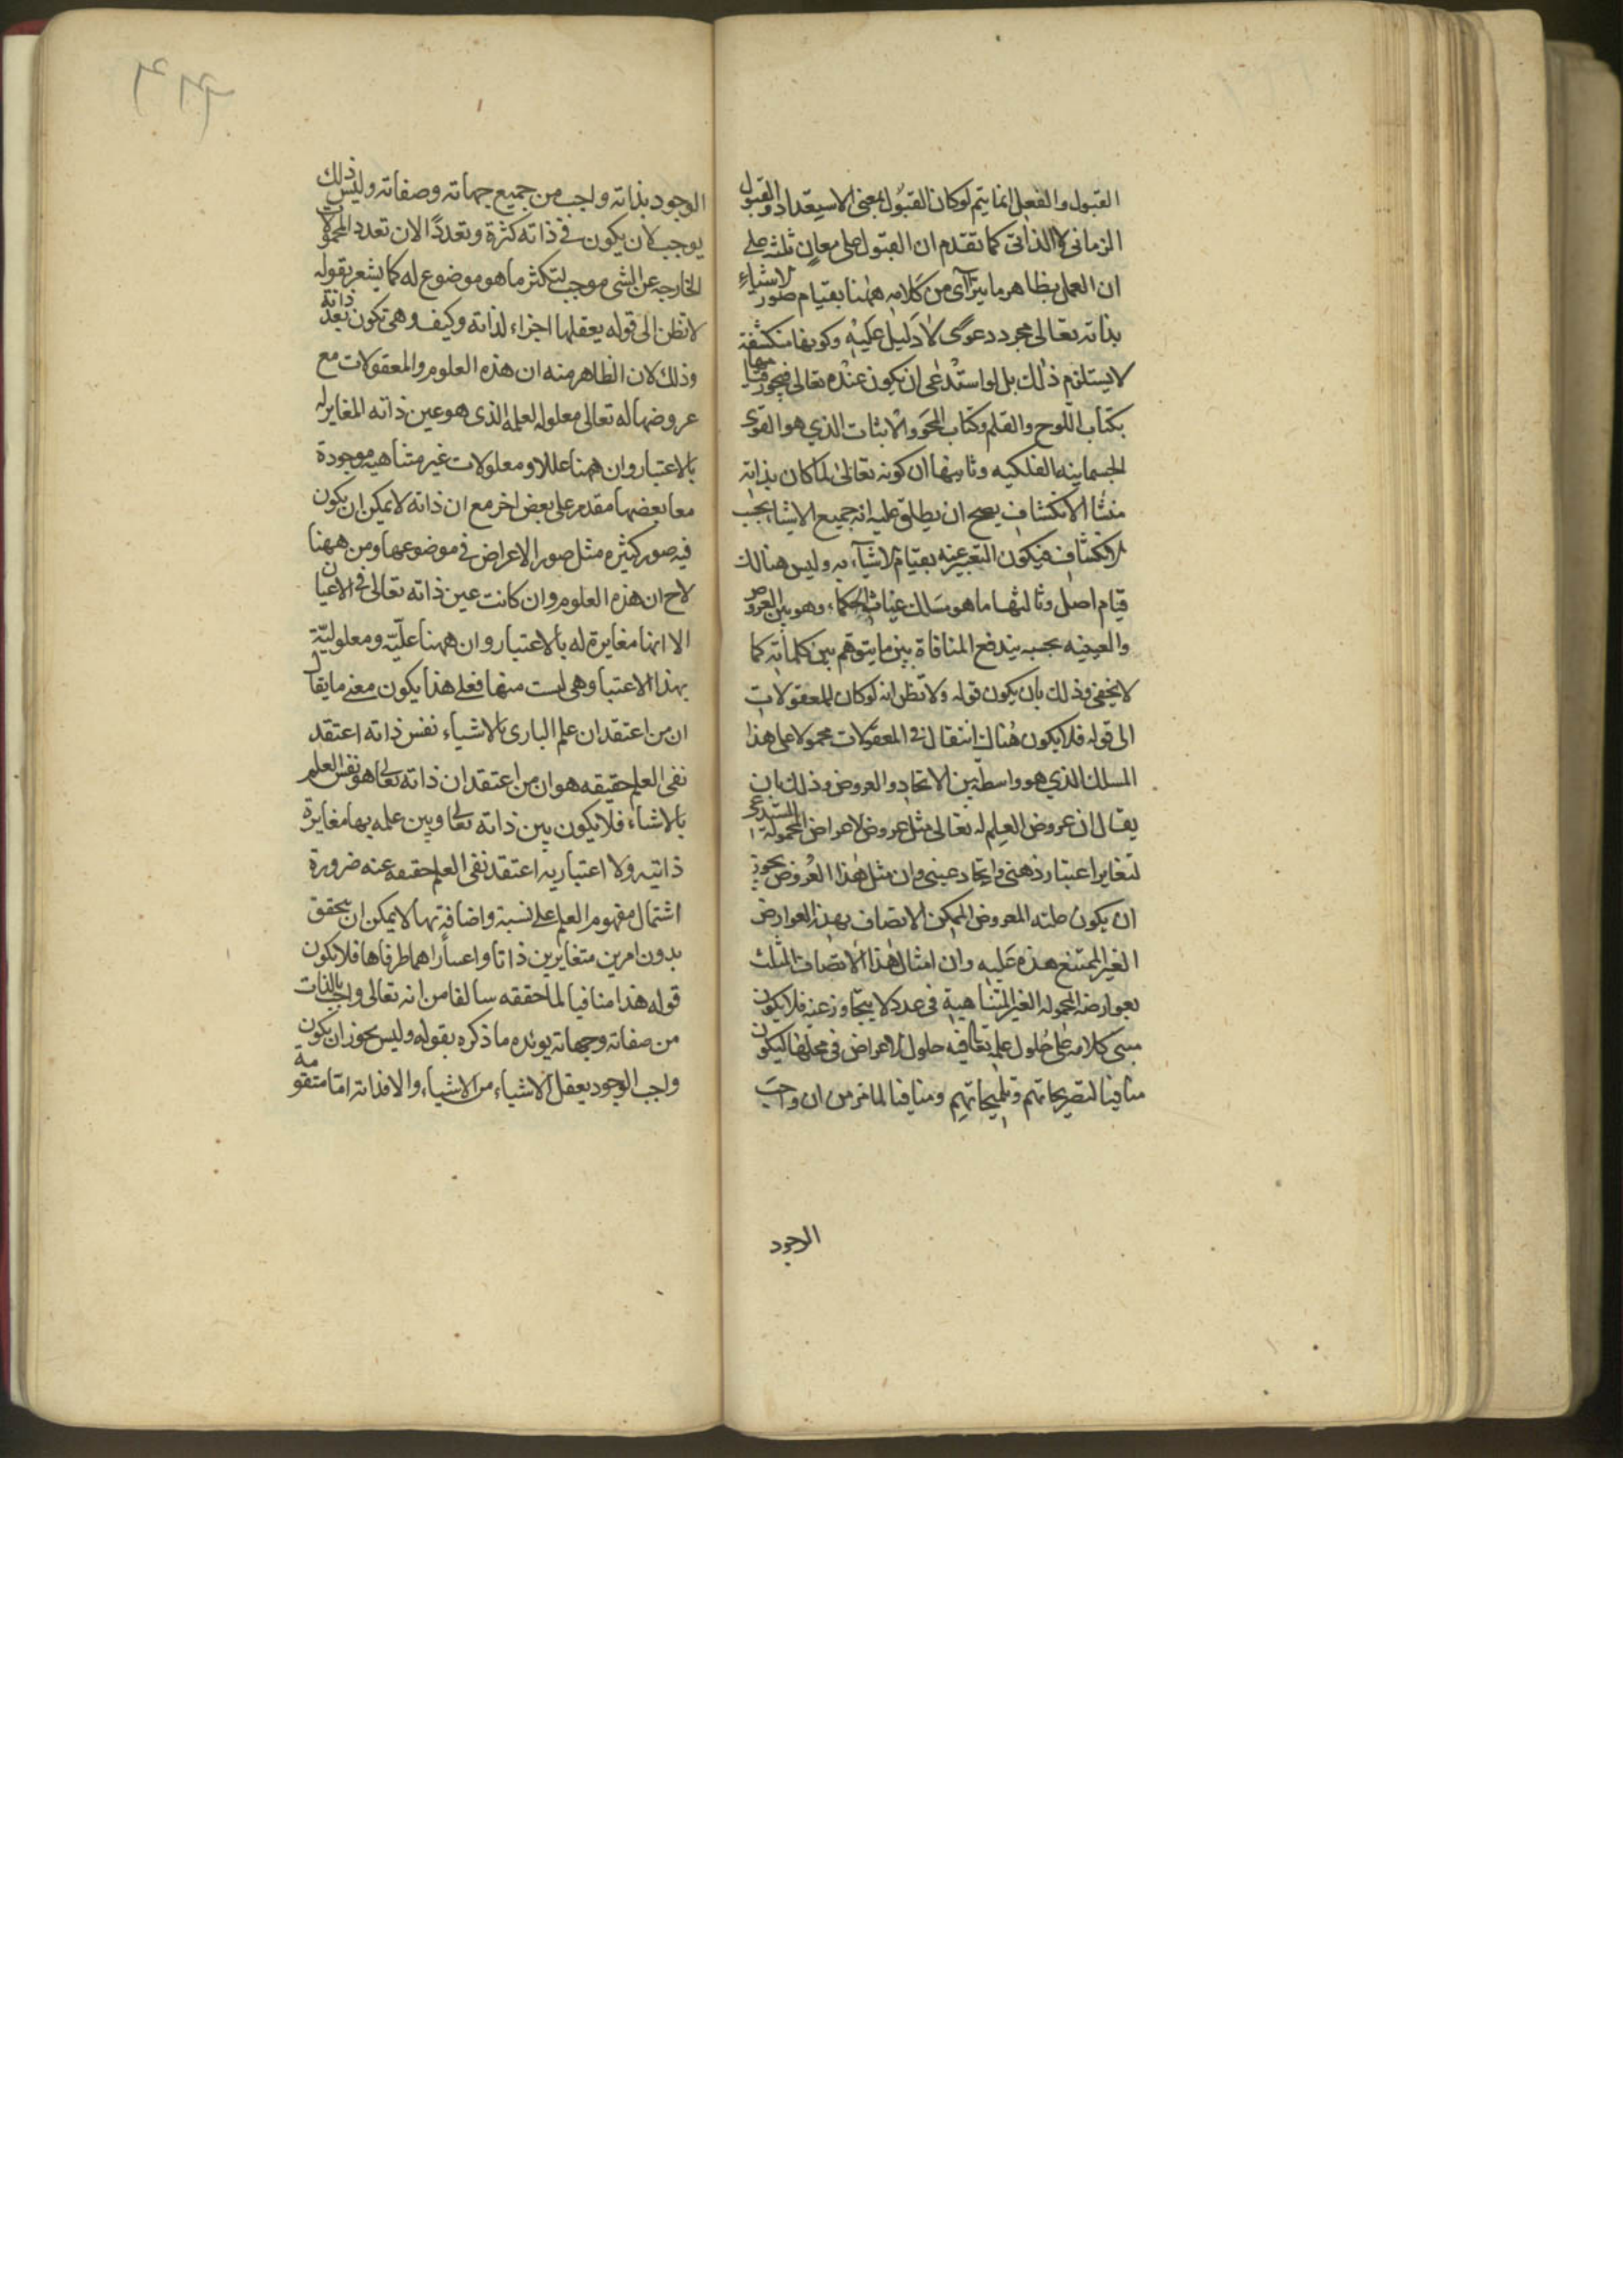 القبول والفعل انما يتم لو كان القبول بمعنى الاستعداد والقبول
الزمانى لا الذاتى كما تقدم ان القبول على معان ثلثه على
ان العمل بظاهر ما يترآى من كلامه ههنا بقيام صور الاشياء
بذاته تعالى مجرد دعوى لا دليل عليه وكونها منكشفة
لا يستلزم ذلك بل لو استدعى ان يكون عنده تعالى فيجوز قيامها
بكتاب اللوح والقلم وكتاب المحو والاثبات الذي هو القوى
الجسمانيه الفلكيه وثانيها ان كونه تعالى لما كان بذاته
منشا الانكشاف يصح ان يطلق عليه انه جميع الاشيا بحب
الانكشاف فيكون التعبير عنه بقيام الاشيآء به وليس هنالك
قيام اصل وثالثها ما هو مسلك غياث الحكماء وهو بين العروض
والعينيه بحسبه يندفع المنافاة بين ما يتوهم بين كلماته كما
لا يخفى وذلك بان يكون قوله ولا تظن انه لو كان للمعقولات
الى قوله فلا يكون هناك انتقال فى المعقولات محمولا على هذا
المسلك الذي هو واسطة بين الاتحاد والعروض وذلك بان
يقال ان عروض العلم له تعالى مثل عروض الاعراض المحمولة المستدعى
لتغاير اعتبار ذهنى واتحاد عينى وان مثل هذا العروض يجوز
ان يكون علته المعروض الممكن الاتصاف بهذه العوارض
الغير الممتنع هذه عليه وان امثال هذا الاتصاف المثلث
بعوارضه المحموله الغير المتناهية فى عدد لا يتجاوز عنه فلا يكون
مبنى كلامه على حلول علمه تعالى فيه حلول الاعراض فى محلها ليكون
منافيا لتصريحاتهم وتلميحاتهم ومنافيا لما مر من ان واجب
الوجود
الوجود بذاته واجب من جميع جهاته وصفاته وليس ذلك
يوجب لان يكون فى ذاته كثرة وتعددًا لان تعدد المحمولات
الخارجه عن الشى موجب لتكثر ما هو موضوع له كما يشعر بقوله
لا تظن الى قوله يعقلها اجزاء لذاته وكيف وهى تكون بعد ذاته
وذلك لان الظاهر منه ان هذه العلوم والمعقولات مع
عروضها له تعالى معلوله لعلمه الذى هو عين ذاته المغاير له
بالاعتبار وان ههنا عللا ومعلولات غير متناهيه موجودة
معا بعضها مقدم على بعض اخر مع ان ذاته لا يمكن ان يكون
فيه صور كثيره مثل صور الاعراض فى موضوعها ومن ههنا
لاح ان هذه العلوم وان كانت عين ذاته تعالى فى الاعيان
الا انها مغايرة له بالاعتبار وان ههنا علّيّة ومعلوليّة
بهذا الاعتبار وهى ليست منها فعلى هذا يكون معنى ما يقال
ان من اعتقد ان علم البارى بالاشياء نفس ذاته اعتقد
نفى العلم حقيقه هو ان من اعتقد ان ذاته تعالى هو نفس العلم
بالاشياء فلا يكون بين ذاته تعالى وبين علمه بها مغايرة
ذاتيه ولا اعتباريه اعتقد نفى العلم حقيقه عنه ضرورة
اشتمال مفهوم العلم على نسبة واضافة بها لا يمكن ان يتحقق
بدون امرين متغايرين ذاتا او اعتبارا هما طرفاها فلا يكون
قوله هذا منافيا لما حققه سالفا من انه تعالى واجب بالذات
من صفاته وجهاته يوئده ما ذكره بقوله وليس يجوز ان يكون
واجب الوجود يعقل الاشياء من الاشياء والا فذاته امّا متقومة